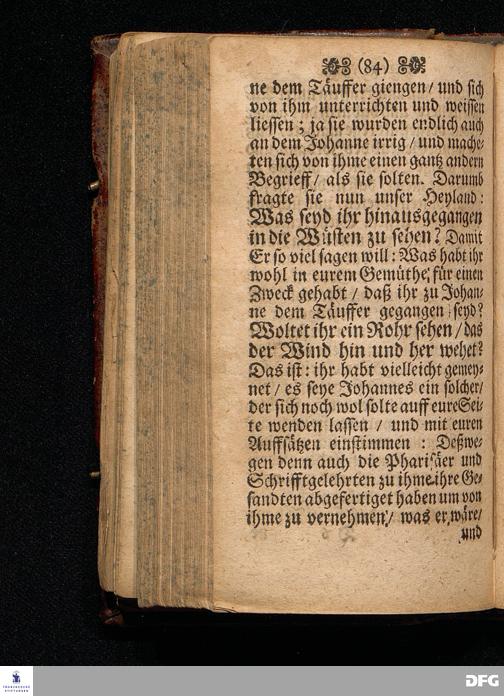 (84)
ne dem Täuffer giengen / und sich
von ihm unterrichten und weissen
liessen ; ja sie wurden endlich auch
an dem Johanne irrig / und mache-
ten sich von ihme einen gantz andern
Begrieff / als sie solten. Darumb
fragte sie nun unser Heyland:
Was seyd ihr hinausgegangen
in die Wüsten zu sehen? Damit
Er so viel sagen will: Was habt ihr
wohl in eurem Gemüthe, für einen
Zweck gehabt / daß ihr zu Johan-
ne dem Täuffer gegangen seyd?
Woltet ihr ein Rohr sehen / das
der Wind hin und her wehet?
Das ist: ihr habt vielleicht gemey-
net / es seye Johannes ein solcher/
der sich noch wol solte auff eure Sei-
te wenden lassen / und mit euren
Auffsätzen einstimmen : Deßwe-
gen denn auch die Pharisäer und
Schrifftgelehrten zu ihme ihre Ge-
sandten abgefertiget haben um von
ihme zu vernehmen / was er wäre/
und
FRANCKESCHE
STIFTUNGEN
DFG